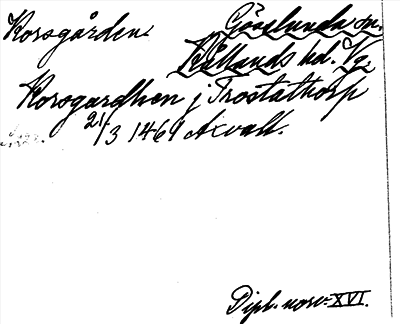 Korsgården.
Göslunda sn.
Kållands hd. Vg.
Korsgardhen j Trostathorp
21/3 1464 Axvall.
Dipl. norv. XVI.